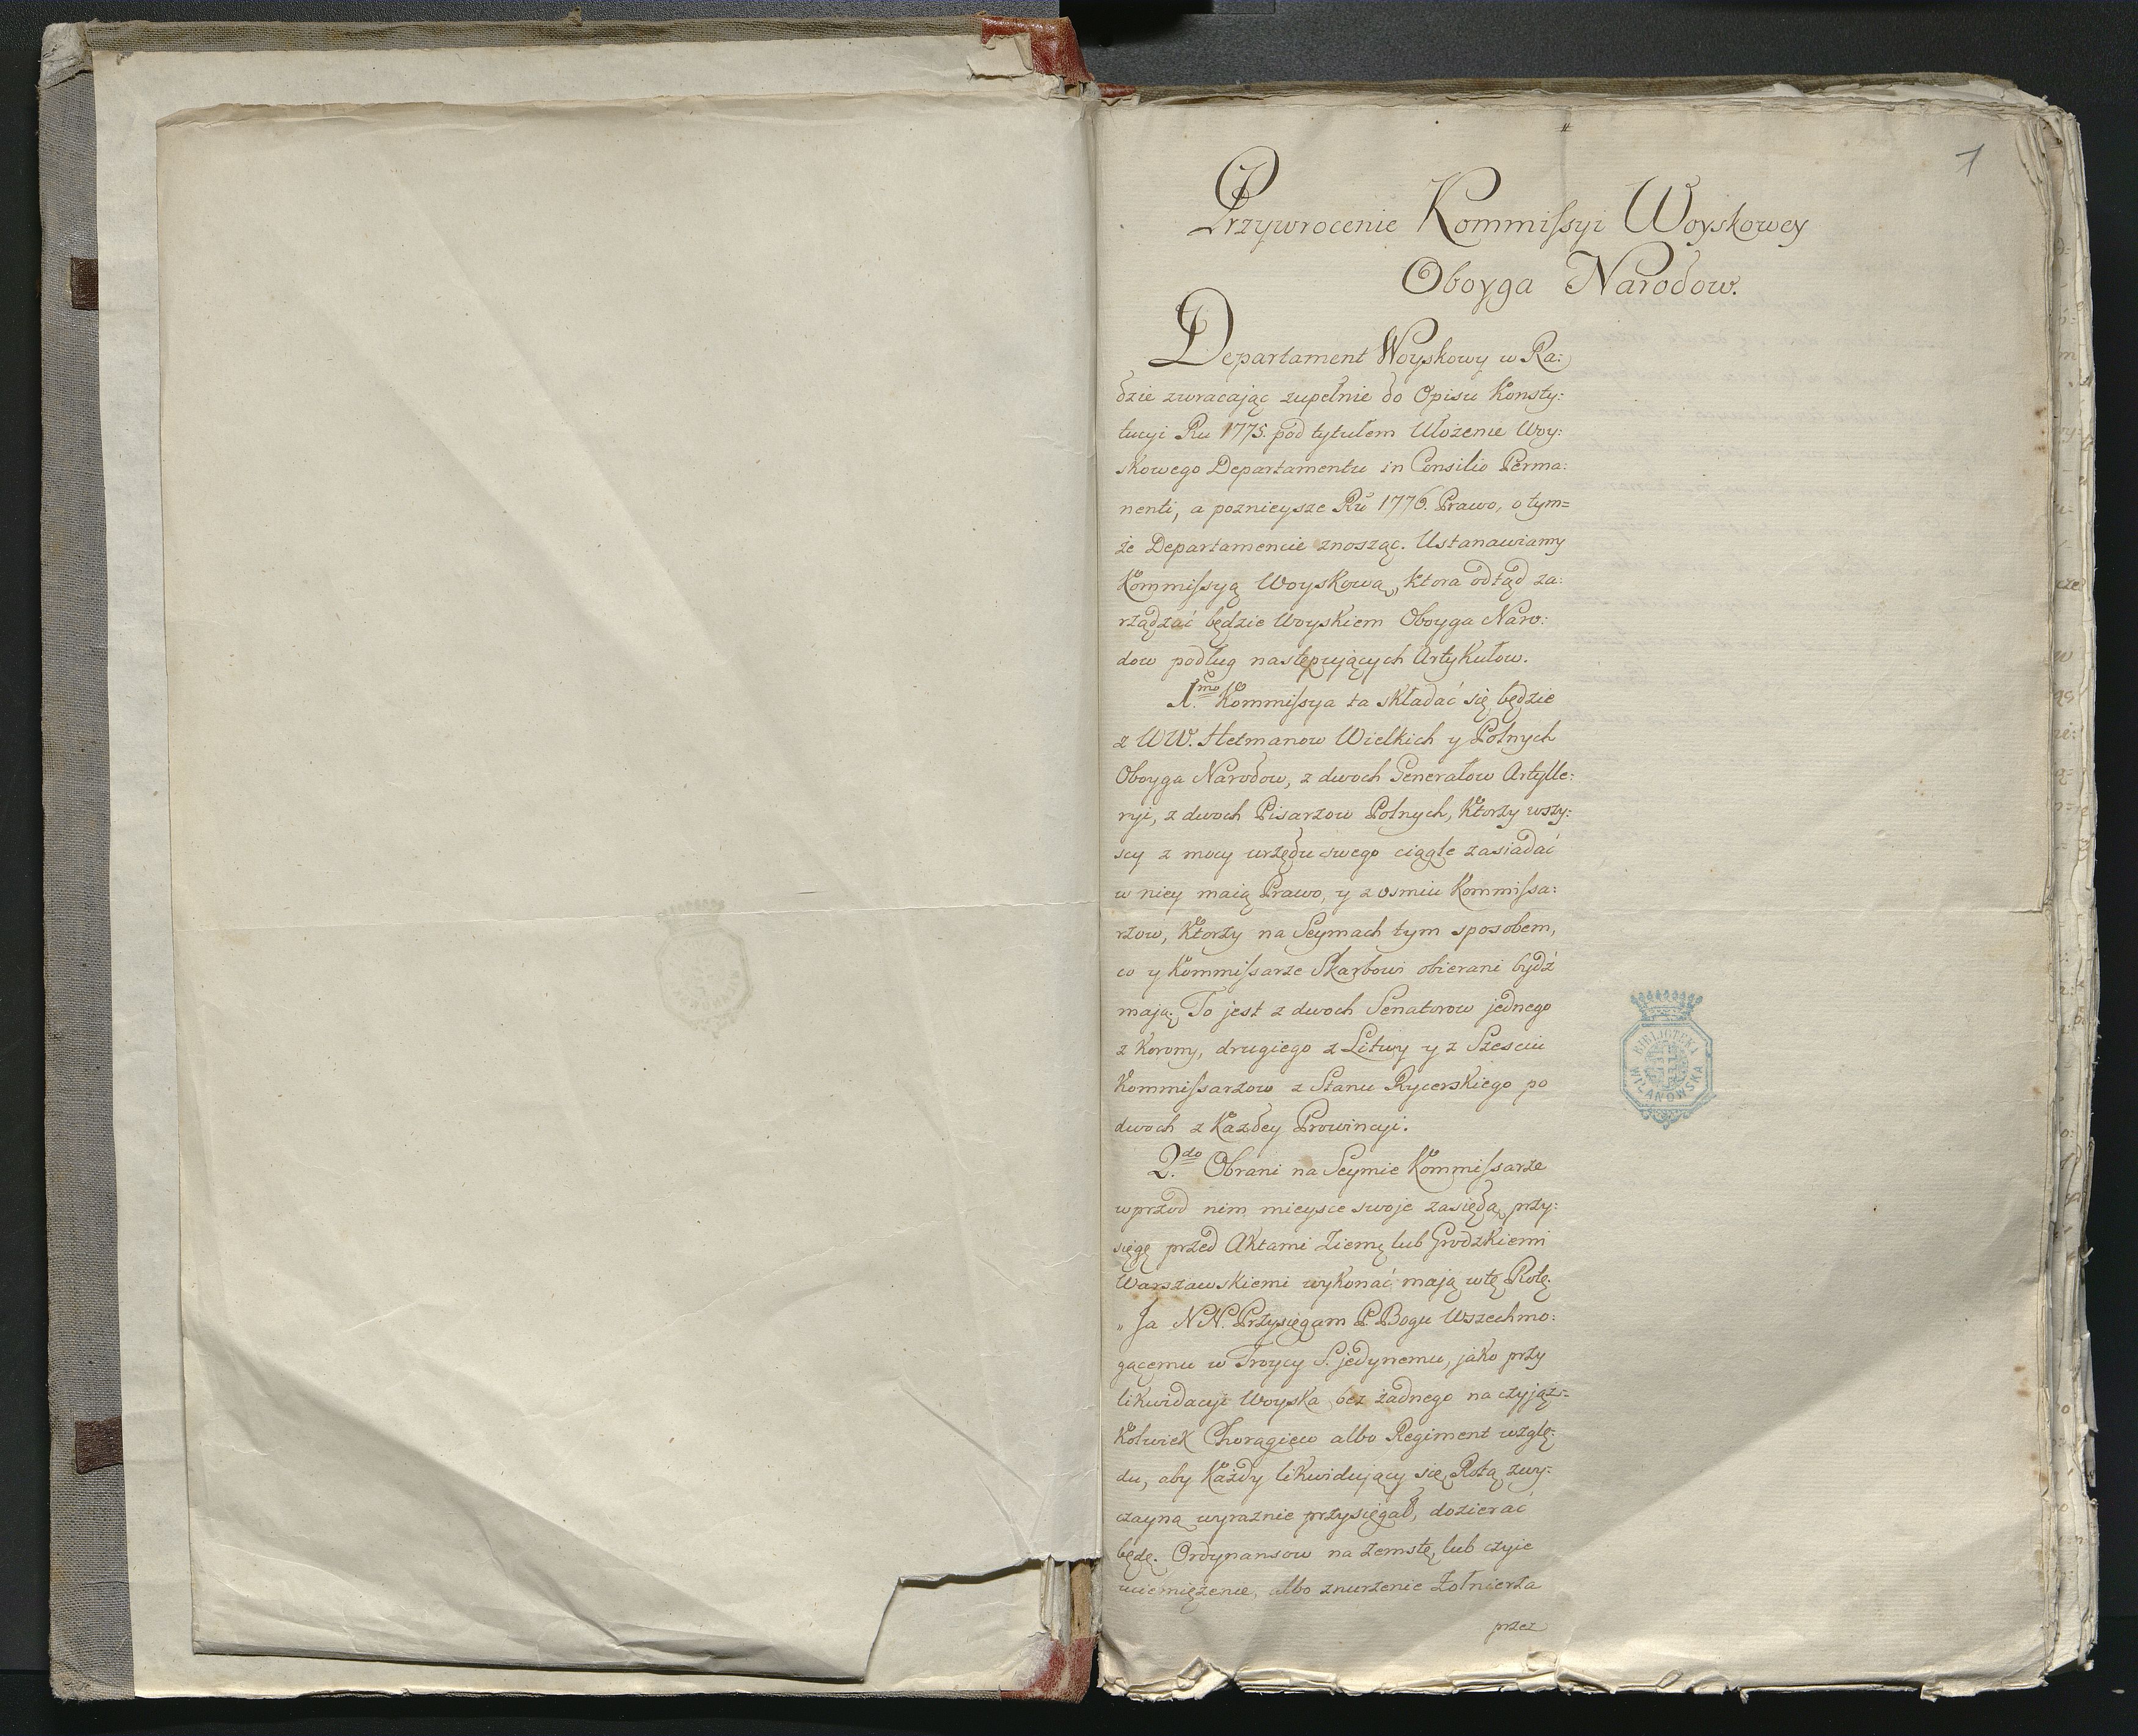 1
Przywrocenie Kommissyi Woyskowey
Oboyga Narodow.
Departament Woyskowy w Ra:
dzie zwracaiąc zupełnie do Opisu Konsty:
tucyi Ru 1775. pod tytułem Ułożenie Woy:
skowego Departamentu in Consilio Perma:
nenti, a poznieysze Ru 1776. Prawo, o tym=
że Departamencie znosząc. Ustanawiamy
Kommissyą Woyskową, ktora odtąd za:
rządzać będzie Woyskiem Oboyga Naro:
dow podług następujących Artykułow.
1mo. Kommissya ta składać się będzie
z WW. Hetmanow Wielkich y Polnych
Oboyga Narodow, z dwoch Generałow Artylle:
ryi, z dwoch Pisarzow Polnych, Ktorzy wszy:
scy z mocy urzędu swego ciągle zasiadać
w niey maią Prawo, y z osmiu Kommissa:
rzow, Ktorzy na Seymach tym sposobem,
co y Kommissarze Skarbowi obierani bydź
mają. To jest z dwoch Senatorow jednego
z Korony, drugiego z Litwy y z Szesciu
Kommissarzow z Stanu Rycerskiego po
dwoch z Każdey Prowincyi.
2do. Obrani na Seymie Kommissarze
wprzod nim mieysce swoje zasiędą, przy:
sięgę przed Aktami Ziemą lub Grodzkiemi
Warszawskiemi wykonać mają w tę Rotę.
„Ja NN. Przysięgam P. Bogu Wszechmo:
gącemu w Troycy S. jedynemu, jako przy
likwidacyi Woyska bez żadnego na czyjąż=
kolwiek Chorągiew albo Regiment wzglę:
du, aby Każdy likwidujący się, Rotą zwy:
czayną wyraznie przysięgał, dozierać
będę. Ordynansow na zemstę, lub czyie
uciemiężenie, albo znurzenie Żołnierza
przez
BIBLIOTEKA
WILANOWSKA